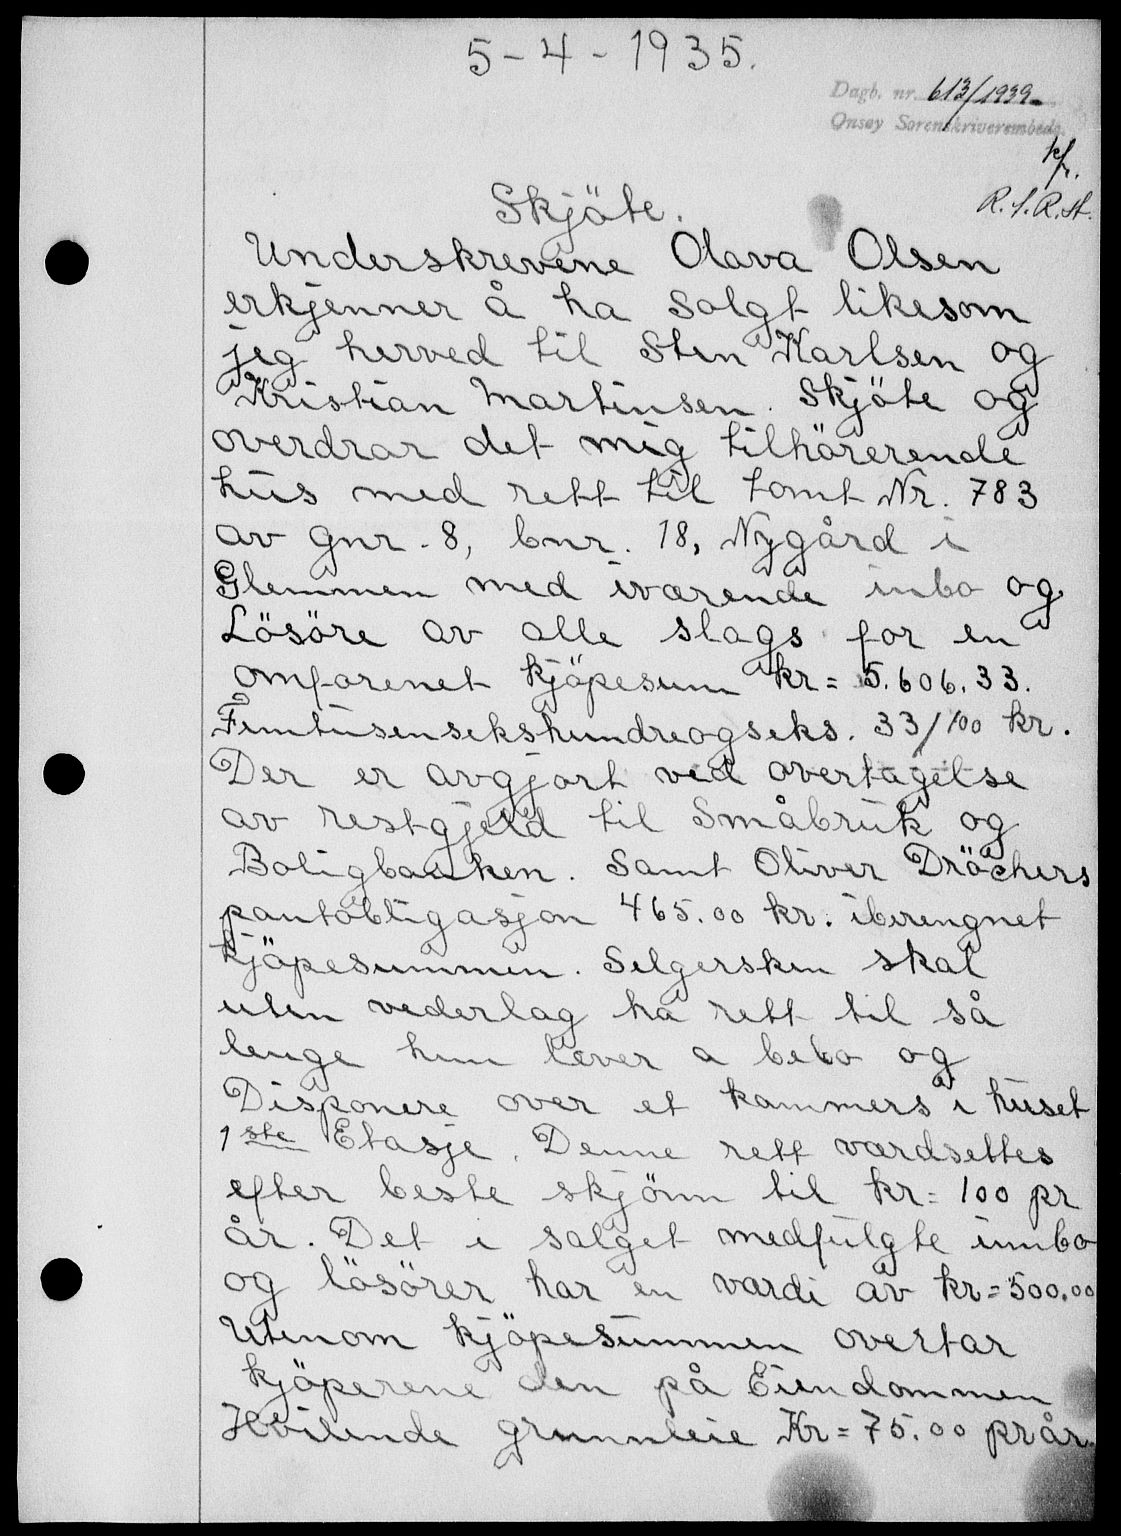 5-4-1935.
Dagb. nr. 613/1939
Onsøy Sorenskriverembede.
R.S.R.st.
Skjöte.
Underskrevene Olava Olsen
erkjenner å ha solgt likesom
jeg herved til Sten Karlsen og
Kristian Martinsen. Skjöte og
overdrar det mig tilhörerende
hus med rett til tomt Nr. 783
av gnr. 8, bnr. 18, Nygård i
Glemmen med iværende inbo og
Lösöre av alle slags for en
omforenet kjöpesum kr = 5.606.33.
Femtusensekshundreogseks. 33/100 kr.
Der er avgjort ved overtagelse
av restgjeld til Småbruk og
Boligbanken. Samt Oliver Dröchers
pantobligasjon 465.00 kr. iberengnet
kjöpesummen. Selgersken skal
uten vederlag ha rett til så
lenge hun lever a bebo og
Disponere over et kammers i huset
1ste Etasje. Denne rett værdsettes
efter beste skjönn til kr = 100 pr
år. Det i salget medfulgte innbo
og lösörer har en værdi av kr = 500.00
Utenom kjöpesummen overtar
kjöperene den på Eiendommen
Hvilende grunnleie Kr = 75.00 pr år.